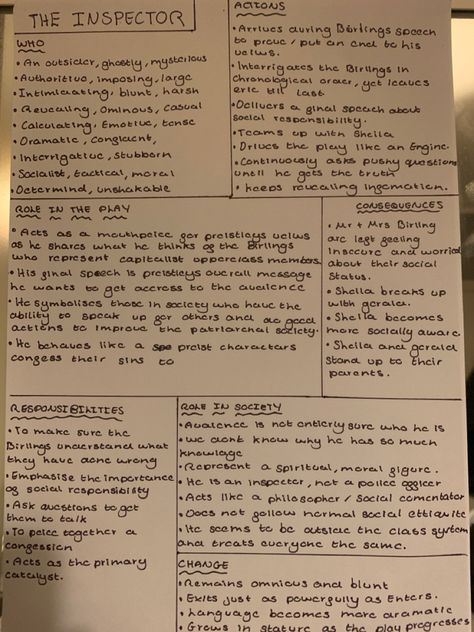 THE INSPECTOR
WHO
• An outsider, ghostly, mysterious
• Authoritive, imposing, large
• Intimidating, blunt, harsh
• Revealing, ominous, casual
• Calculating, Emotive, tense
• Dramatic,
• Interrigative, stubborn
• Socialist, tactical, moral
• Determind, unshakable
ACTIONS
• Arrives during Birlings speech
to prove / put an end to his
veiws.
• Interrigates the Birlings in
chronological order, yet leaves
eric till last
• Delivers a final speech about
social responsibility.
• Teams up with Sheila
• Drives the play like an Engine.
• Continuously asks pushy questions
until he gets the truth
• keeps revealing infomation.
ROLE IN THE PLAY
• Acts as a mouthpeice for preistleys veiws
as he shares what he thinks of the Birlings
who represent capitalist upperclass members.
• His final speech is preistleys overall message
he wants to get accross to the audeince
• He symbolises those in society who have the
ability to speak up for others and do good
actions to improve the patriarchal society.
• He behaves like a preist characters
confess their sins to
CONSEQUENCES
• Mr + Mrs Birling
are left feeling
insecure and worried
about their social
status.
• Sheila breaks up
with gerald.
• Sheila becomes
more socially aware.
• Sheila and gerald
stand up to their
parents.
RESPONSIBILITIES
• To make sure the
Birlings understand what
they have done wrong
• Emphasise the importance
of social responsibility
• Ask questions to get
them to talk
• To peice together a
confession
• Acts as the primary
catalyst.
ROLE IN SOCIETY
• Audeince is not entirely sure who he is
• we dont know why he has so much
knowlage
• Represent a spiritual, moral figure.
• He is an inspector, not a police officer
• Acts like a philosopher / social comentator
• Does not follow normal social
• He seems to be outside the class system
and treats everyone the same.
CHANGE
• Remains omnious and blunt
• Exits just as powerfully as Enters.
• Language becomes more dramatic
• Grows in stature as the play progresses